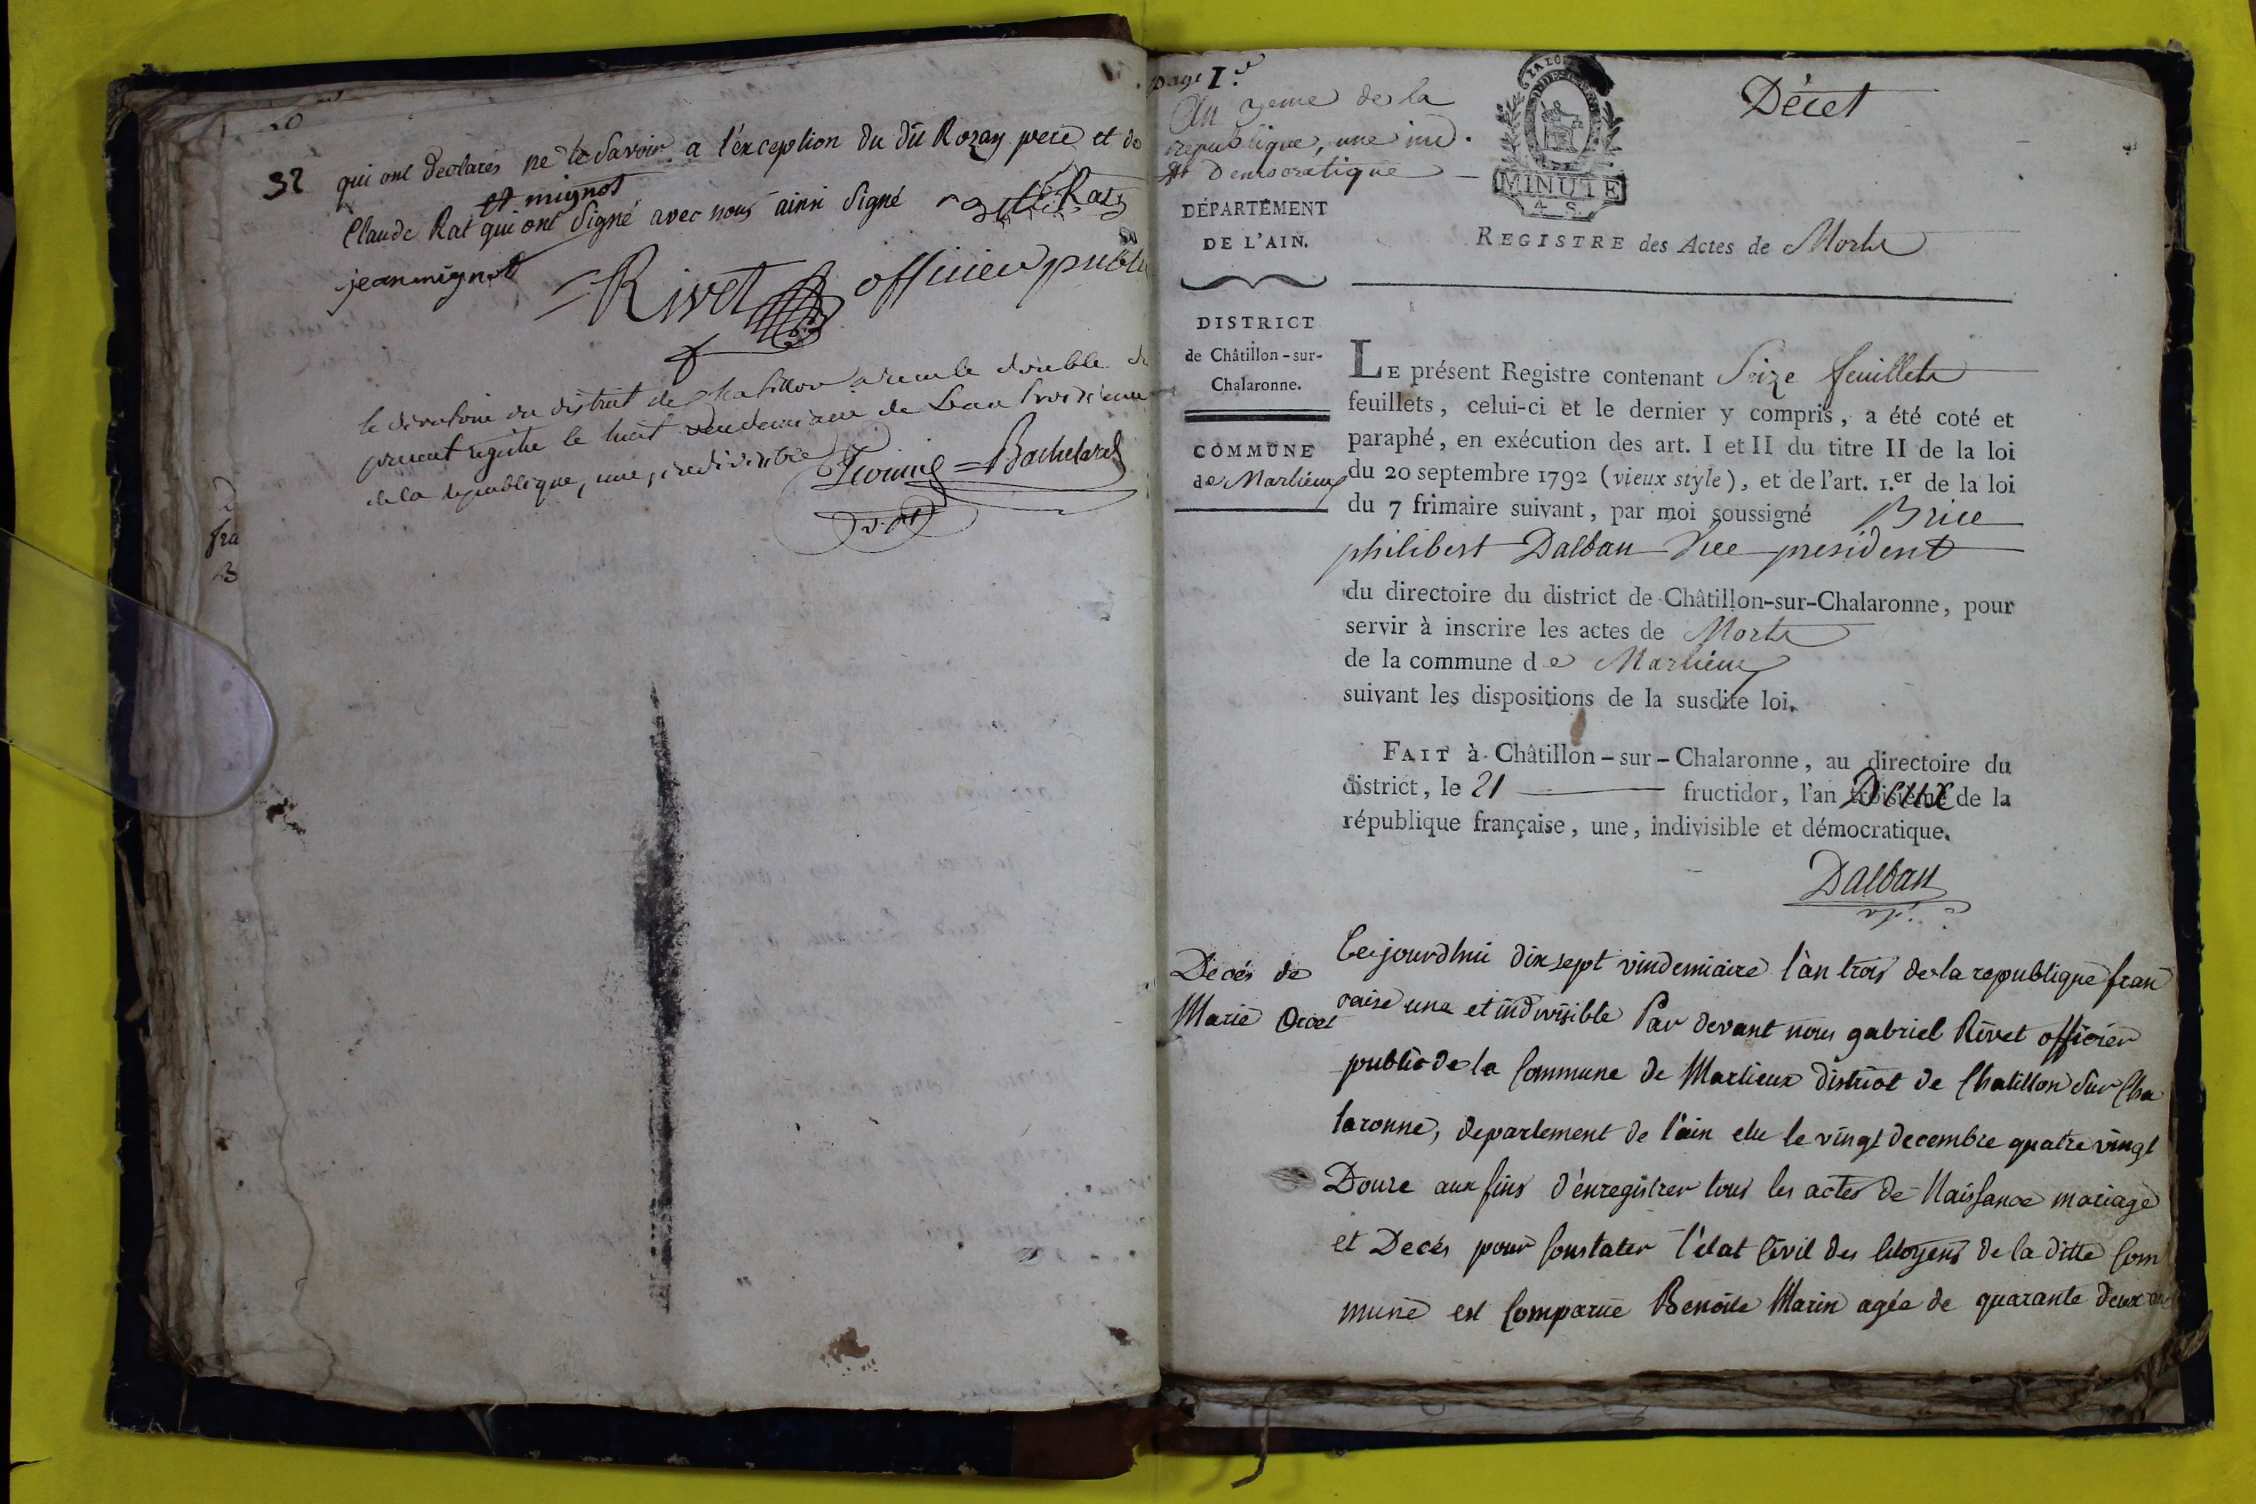 32
qui ont declarés ne le savoir a l'exception du dit Rozay pere et de
et mignot
Claude Rat qui ont signé avec nous ainsi signé Rat
jean mignot
Rivet officier public
le directoire du district de chatillon a recu le double du
present registre le huit vendemiaire de l'an troisieme
de la republique, une, indivisible
Bachelard
page 1.e
An 3eme de la
republique, une ind.
et Democratique
LA LOI
MINUTE
4 S.
Décet
DÉPARTEMENT
DE L'AIN.
REGISTRE des Actes de Morts
DISTRICT
de Châtillon-sur-
Chalaronne.
COMMUNE
de Marlieux
LE présent Registre contenant Seize feuillets
feuillets, celui-ci et le dernier y compris, a été coté et
paraphé, en exécution des art. I et II du titre II de la loi
du 20 septembre 1792 (vieux style), et de l'art. 1.er de la loi
du 7 frimaire suivant, par moi soussigné Brice
philibert Dalban Vice president
du directoire du district de Châtillon-sur-Chalaronne, pour
servir à inscrire les actes de Morts
de la commune de Marlieux
suivant les dispositions de la susdite loi.
FAIT à Châtillon-sur-Chalaronne, au directoire du
district, le 21 fructidor, l'an troisieme Deux de la
république française, une, indivisible et démocratique.
Dalban
Decés de
Marie Orcet
Cejourdhui dix sept vindemiaire l'an trois de la republique fran
caise une et indivisible Par devant nous gabriel Rivet officier
public de la Commune de Marlieux district de Chatillon sur Cha
laronne, departement de l'ain elu le vingt decembre quatre vingt
Douze aux fins d'énregistrer tous les actes de Naissance mariage
et Decés pour Constater l'état Civil des Citoyens de la ditte Com
mune est Comparüe Benoite Marin agée de quarante deux ans